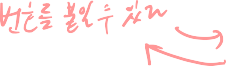 번호를 붙일 수 있고